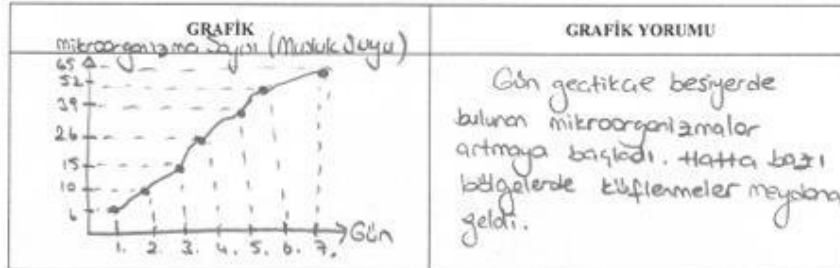 GRAFİK
mikroorganizma Sayısı (Musluk Suyu)
65
52
39
26
15
10
6
1. 2. 3. 4. 5. 6. 7. Gün
GRAFİK YORUMU
Gün geçtikçe besiyerde
bulunan mikroorganizmalar
artmaya başladı. Hatta bazı
bölgelerde küflenmeler meydana
geldi.